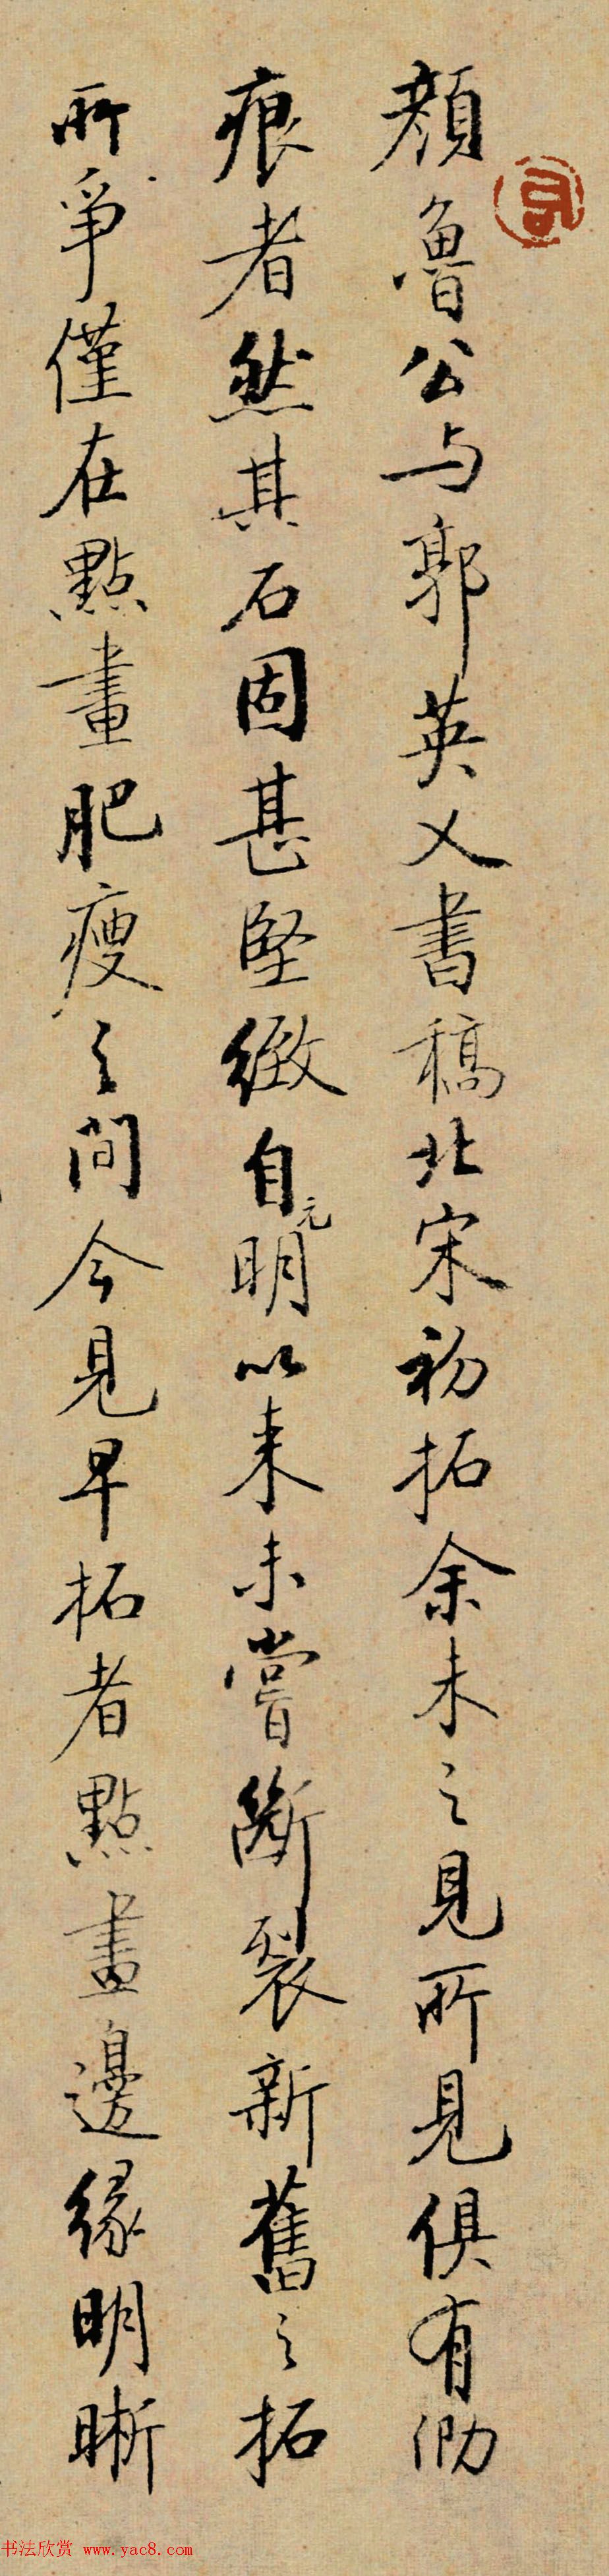 顔魯公与郭英乂書稿北宋初拓余未之見所見俱有泐
痕者然其石固甚堅緻自元明以来未嘗斷裂新舊之拓
所爭僅在點畫肥瘦之間今見早拓者點畫邊緣明晰
书法欣赏 www.yac8.com